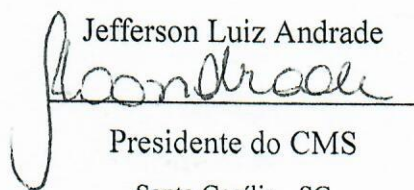 Jefferson Luiz Andrade
Presidente do CMS
Santa Cecília - SC